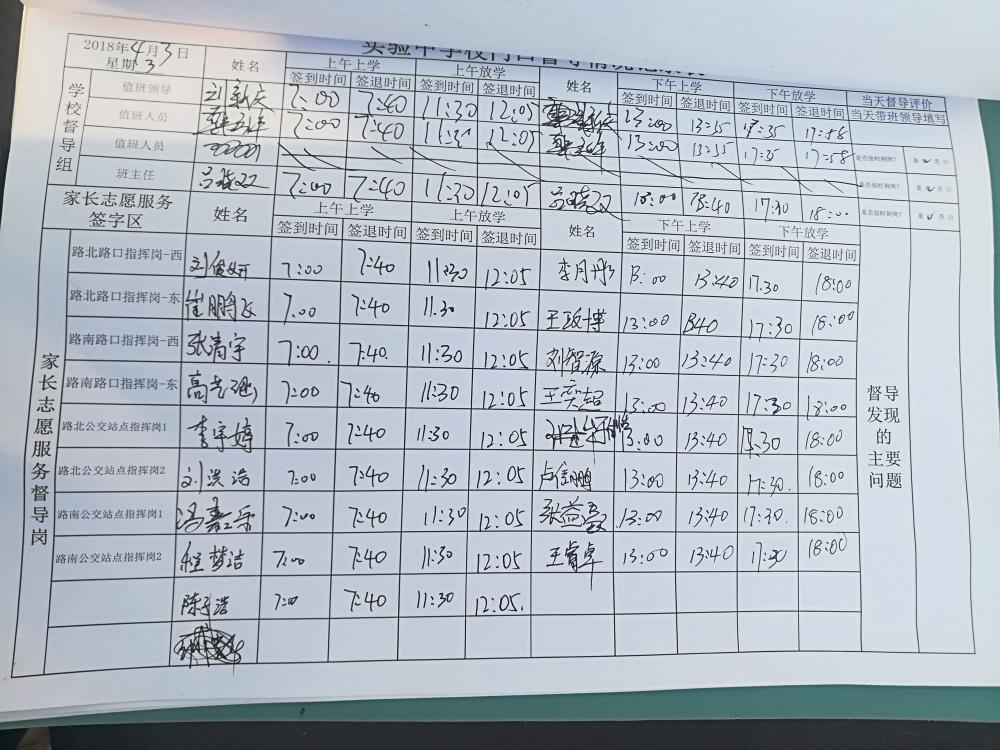 实验中学校门口督导情况记录表
2018年4月3日 姓名 上午上学 上午放学 姓名 下午上学 下午放学 当天督导评价
星期3 签到时间 签退时间 签到时间 签退时间 签到时间 签退时间 签到时间 签退时间 当天带班领导填写
学校督导组
值班领导 刘新庆 7:00 7:40 11:30 12:05 13:00 13:35 17:35 17:58
值班人员 7:00 7:40 12:05 13:00 13:35 17:35 17:58 是否按时到岗? 是 ✓ 否 口
值班人员 是否按时到岗? 是 ✓ 否 口
班主任 吕晓双 7:00 7:40 11:30 12:05 吕晓双 13:00 13:40 17:30 18:00 是否按时到岗? 是 ✓ 否 口
家长志愿服务 姓名 上午上学 上午放学 姓名 下午上学 下午放学
签字区 签到时间 签退时间 签到时间 签退时间 签到时间 签退时间 签到时间 签退时间
家长志愿服务督导岗
路北路口指挥岗-西 刘俊妍 7:00 7:40 11:30 12:05 李月彤 13:00 13:40 17:30 18:00
路北路口指挥岗-东 崔鹏飞 7.00 7:40 11.30 12:05 王政博 13:00 13:40 17:30 18:00
路南路口指挥岗-西 张清宇 7:00. 7:40. 11:30 12:05 刘智源 13:00 13:40 17:30 18:00
路南路口指挥岗-东 7:00 7:40 11:30 12:05 王奕超 13:00 13:40 17:30 18:00
路北公交站点指挥岗1 李宇婷 7:00 7:40 11:30 12:05 13:00 13:40 17:30 18:00
路北公交站点指挥岗2 刘洪浩 7:00 7:40 11:30 12:05 卢佳鹏 13:00 13:40 17:30. 18:00
路南公交站点指挥岗1 冯嘉乐 7:00 7:40 11:30 12:05 张益磊 13:00 13:40 17:30. 18:00
路南公交站点指挥岗2 程梦洁 7:00 7:40 11:30 12:05 王睿卓 13:00 13:40 17:30 18:00
陈子浩 7:00 7:40 11:30 12:05.
督导
发现
的
主要
问题